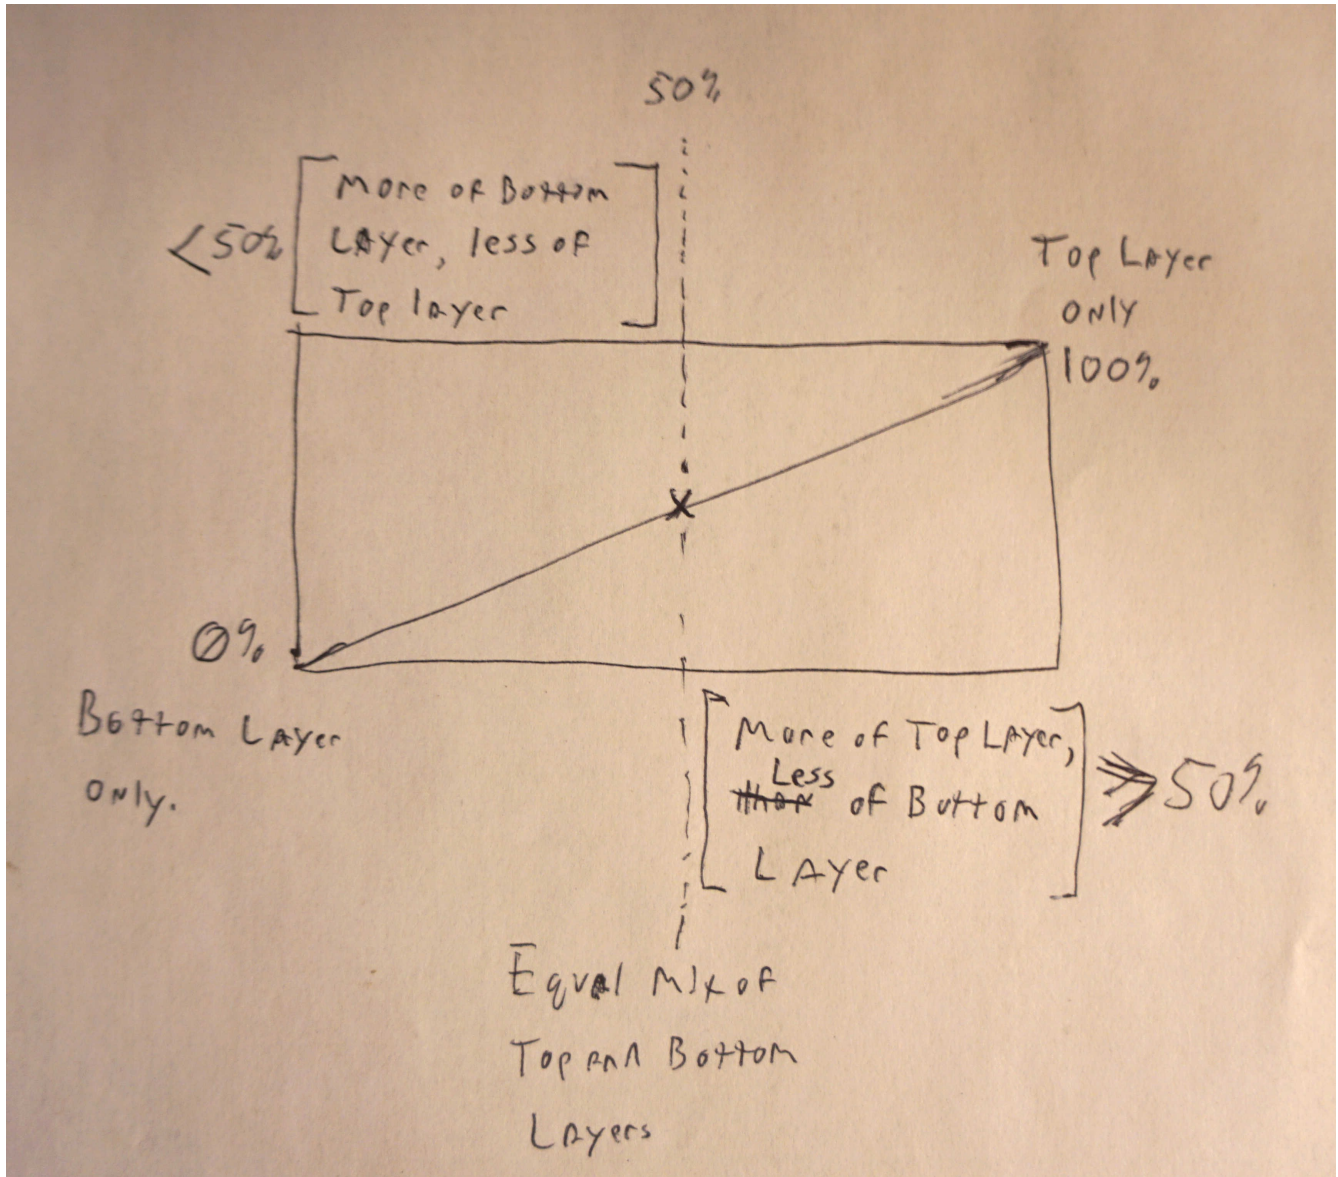 50%
<50%
More of Bottom
Layer, less of
Top layer
Top Layer
only
100%
0%
Bottom Layer
only.
More of Top Layer,
Less
of Bottom
Layer
>50%
Equal Mix of
Top and Bottom
Layers